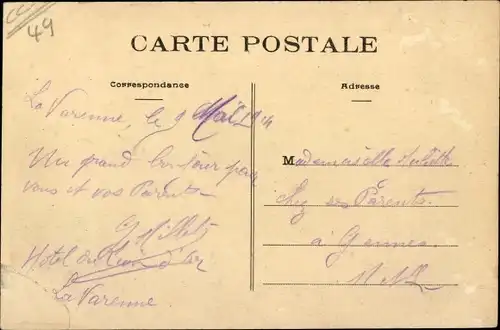 49
CARTE POSTALE
Correspondance
Adresse
La Varenne, le 9 Mai 1914
Un grand bonjour pour
vous et vos Parents
GMillet
Hotel du
La Varenne
Mademoiselle Juliette
chez ses Parents
à Gennes
M & L